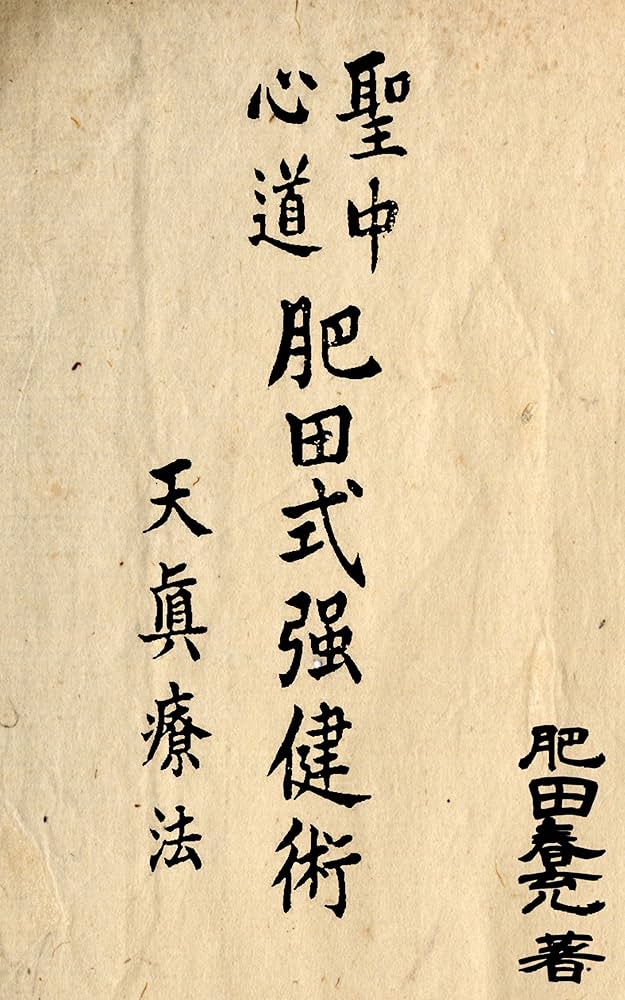 肥田春充 著
聖中
心道
肥田式强健術
天眞療法